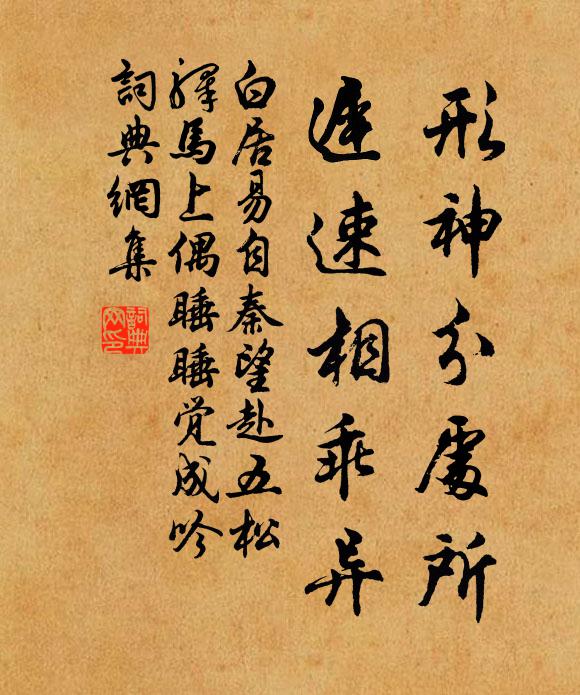 形神分處所
遲速相乖异
白居易自秦望赴五松
驛馬上偶睡睡覚成吟
詞典網集
詞典網印